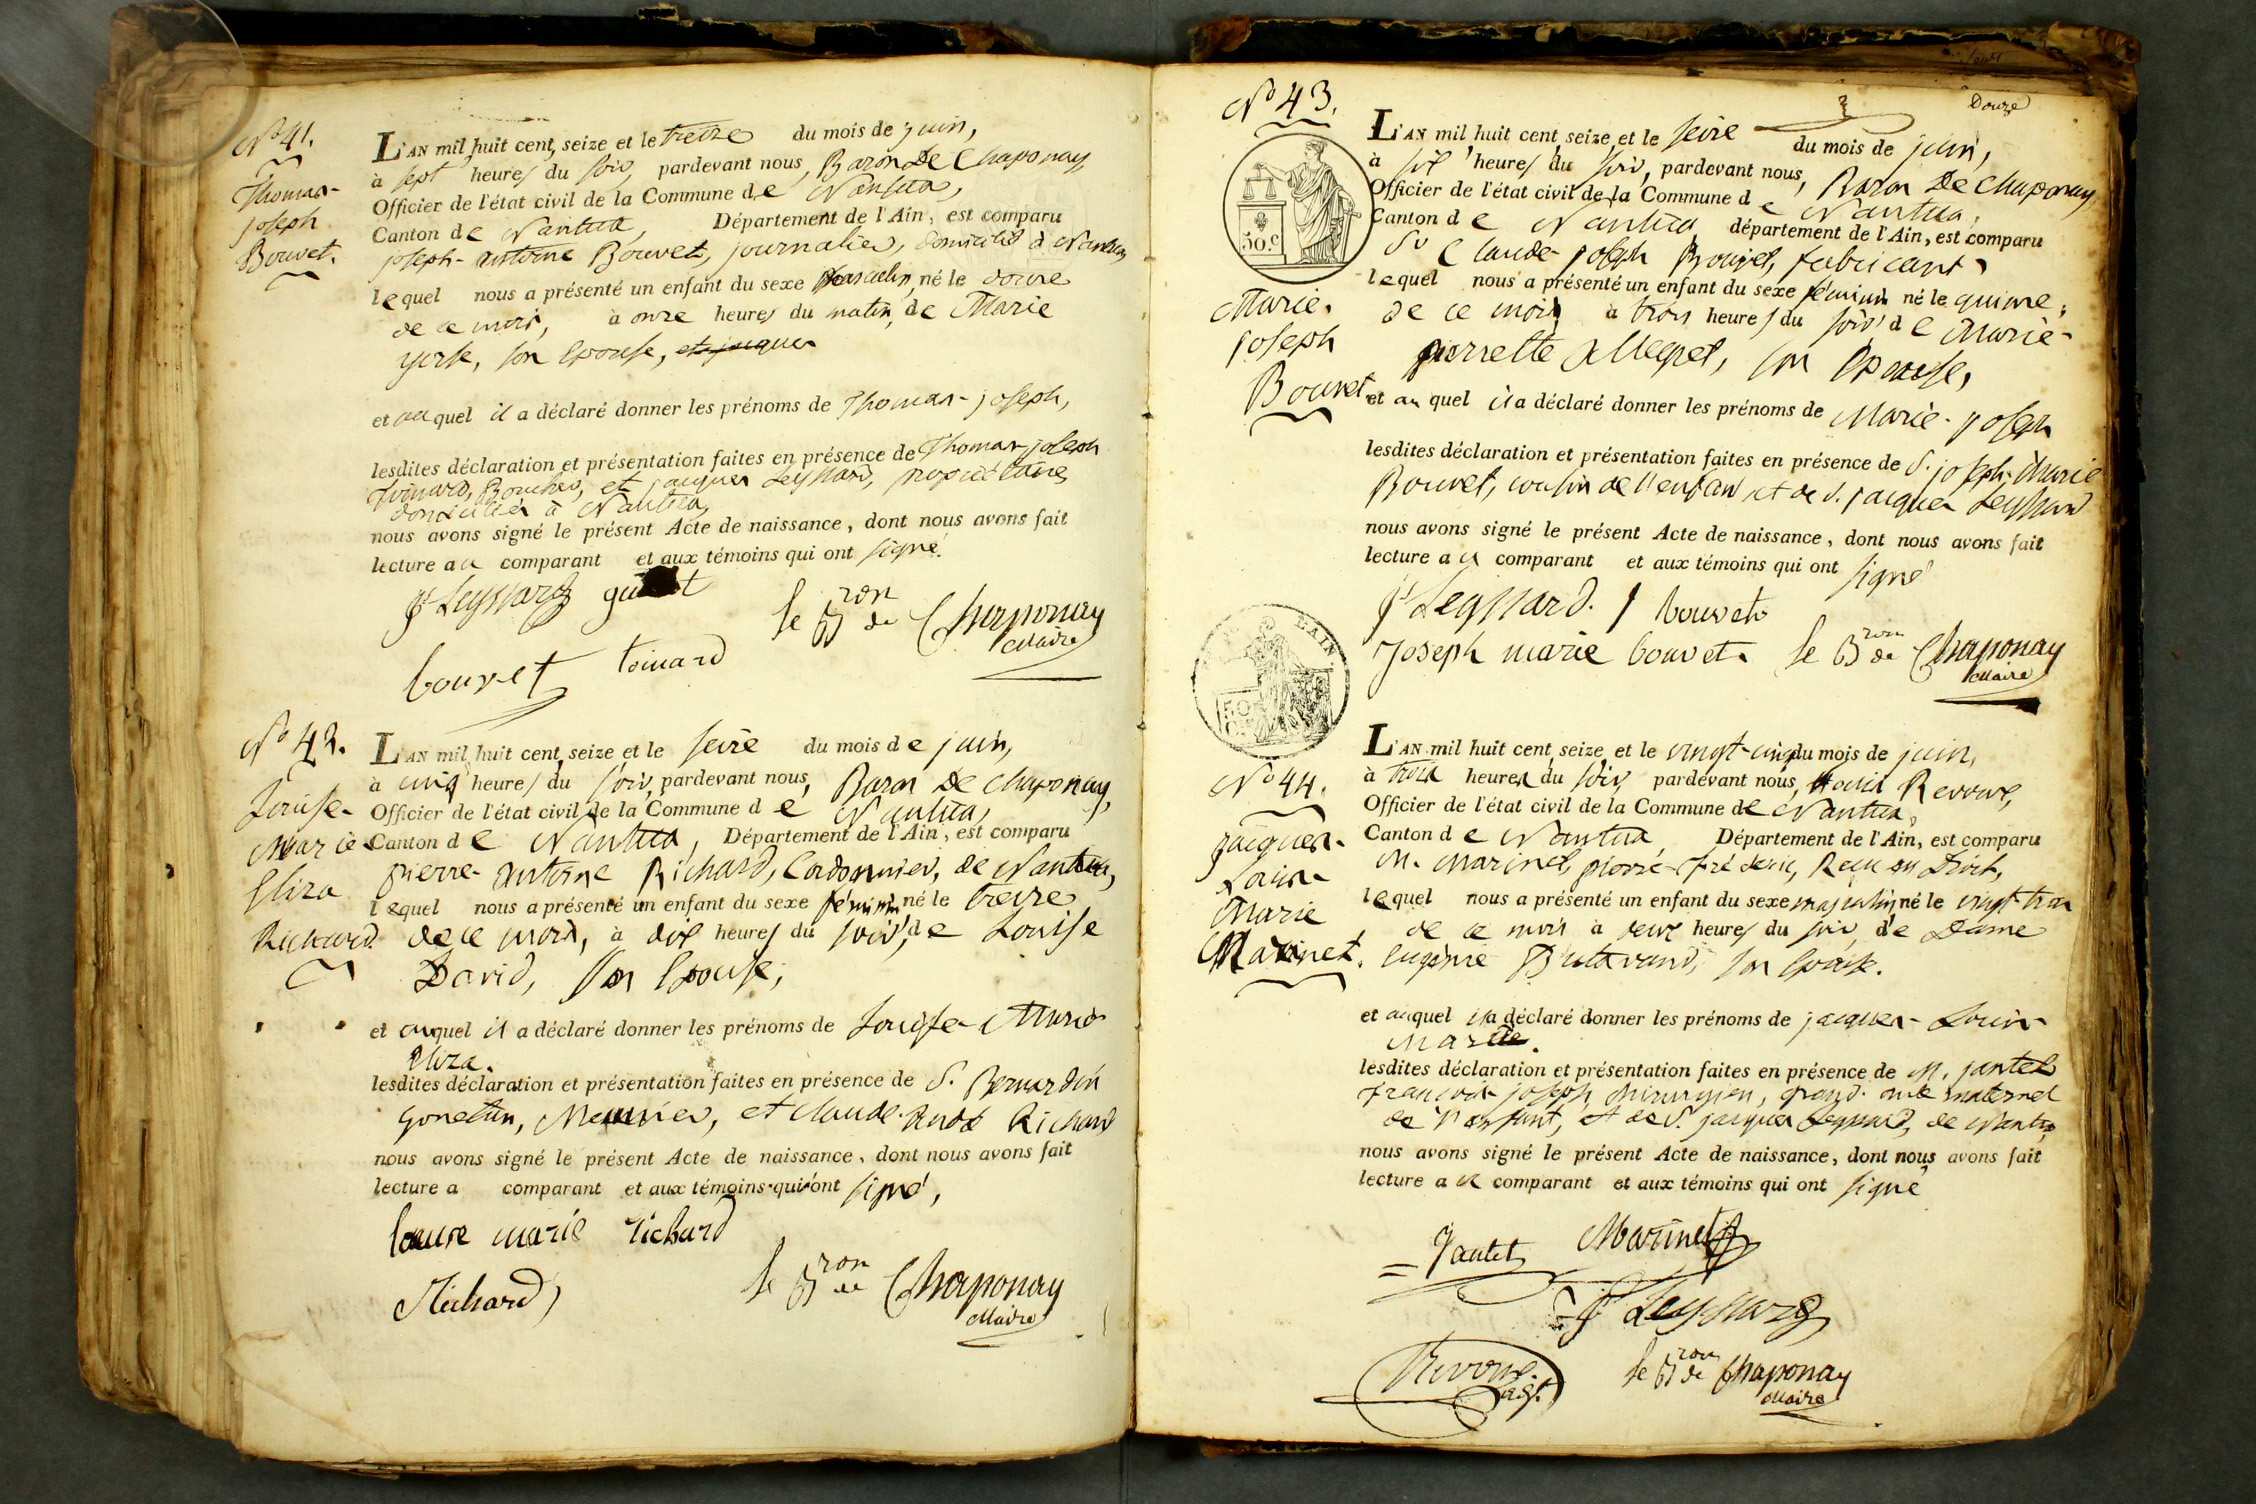 N° 41.
Thomas-
joseph
Bouvet.
L'AN mil huit cent seize et le treize du mois de juin,
à sept heures du soir, pardevant nous, Baron De Chaponay
Officier de l'état civil de la Commune de Nantua,
Canton de Nantua, Département de l'Ain, est comparu
joseph-antoine Bouvet, journalier, domicilié à Nantua
lequel nous a présenté un enfant du sexe masculin, né le douze
de ce mois, à onze heures du matin, de Marie
son Epouse,
et auquel il a déclaré donner les prénoms de Thomas-joseph,
lesdites déclaration et présentation faites en présence de Thomas joseph
Boucher, et jacques Leyssard, propriétaires
domiciliés à Nantua,
nous avons signé le présent Acte de naissance, dont nous avons fait
lecture au comparant et aux témoins qui ont signé.
Jq Leyssard
le Bron de Chaponay
Maire
bouvet toinard
N° 42.
Louise-
Marie
Eliza
Richard
L'AN mil huit cent seize et le seize du mois de juin,
à cinq heures du soir, pardevant nous, Baron De Chaponay,
Officier de l'état civil de la Commune de Nantua,
Canton de Nantua, Département de l'Ain, est comparu
pierre-antoine Richard, Cordonnier, de Nantua,
lequel nous a présenté un enfant du sexe féminin né le treize
de ce mois, à dix heures du soir, de Louise
David, son Epouse,
et auquel il a déclaré donner les prénoms de Louise-Marie
Eliza.
lesdites déclaration et présentation faites en présence de S. Bernardin
Gonetan, Meunier, et Claude Richard
nous avons signé le présent Acte de naissance, dont nous avons fait
lecture a comparant et aux témoins qui ont signé,
marie richard
Richard
le Bron de Chaponay
Maire
Douze
N° 43.
50.c
Marie-
joseph
Bouvet
L'AN mil huit cent seize et le seize du mois de juin,
à six heures du soir, pardevant nous, Baron De Chaponay
Officier de l'état civil de la Commune de Nantua,
Canton de Nantua, département de l'Ain, est comparu
Sr Claude-joseph Bouvet, fabricant
lequel nous a présenté un enfant du sexe féminin né le quinze
de ce mois à trois heures du soir de Marie-
pierrette son Epouse,
et auquel il a déclaré donner les prénoms de Marie-joseph
lesdites déclaration et présentation faites en présence de S. joseph-Marie
Bouvet, cousin de l'enfant et de S. jacques Leyssard
nous avons signé le présent Acte de naissance, dont nous avons fait
lecture au comparant et aux témoins qui ont signé
Jq Leyssard. J bouvet
Joseph marie bouvet le Bron de Chaponay
Maire
L'AIN
50
N° 44.
jacques-
Louis-
Marie
Marinet.
L'AN mil huit cent seize et le vingt-cinq du mois de juin,
à trois heures du soir, pardevant nous,
Officier de l'état civil de la Commune de Nantua,
Canton de Nantua, Département de l'Ain, est comparu
M. Marinet, pierre-fréderic, Reçu en Droit,
lequel nous a présenté un enfant du sexe masculin né le vingt trois
de ce mois à deux heures du soir, de Dame
Eugénie son Epouse.
et auquel il a déclaré donner les prénoms de jacques-Louis-
Marie.
lesdites déclaration et présentation faites en présence de M. jantet
françois joseph, chirurgien, grand oncle maternel
de l'enfant, et de S. jacques Leyssard, de Nantua
nous avons signé le présent Acte de naissance, dont nous avons fait
lecture au comparant et aux témoins qui ont signé
Jantet Marinet
Jq Leyssard
le Bron de Chaponay
Maire